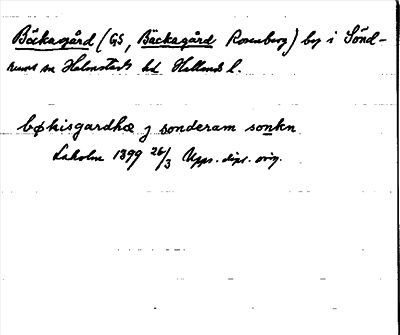 Bäckagård (GS, Bäckagård Rosenberg) by i Sönd-
rums sn Halmstads hd Hallands l.
bøkisgardhæ j sonderam sonkn
Laholm 1399 26/3 Upps. dipl. orig.